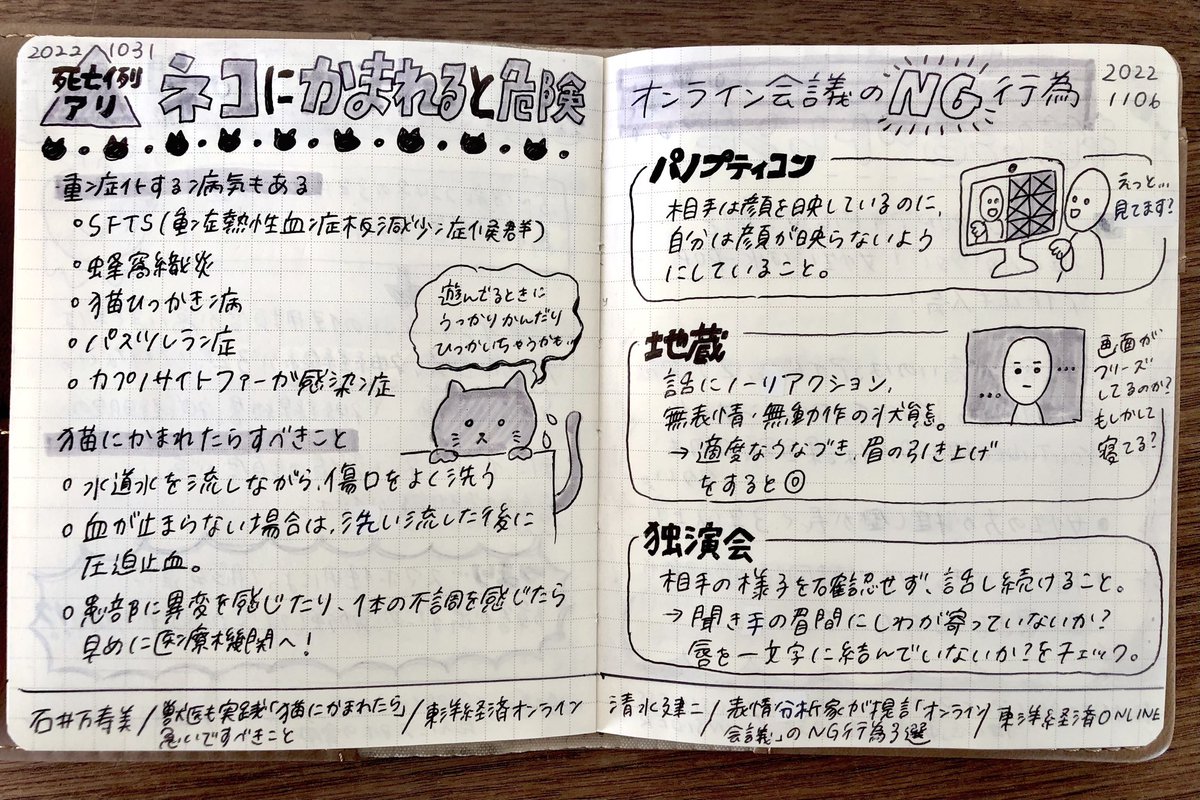 2022 1031
死亡例
アリ
ネコにかまれると危険
重症化する病気もある
○SFTS(重症熱性血症板減少症候群)
○蜂窩織炎
○猫ひっかき病
○パスツレラン症
○カプノサイトファーガ感染症
遊んでるときに
うっかりかんだり
ひっかいちゃうかも…
猫にかまれたらすべきこと
○水道水を流しながら、傷口をよく洗う
○血が止まらない場合は、洗い流した後に
圧迫止血。
○患部に異変を感じたり、体の不調を感じたら
早めに医療機関へ!
石井万寿美/獣医も実践「猫にかまれたら」
急いですべきこと/東洋経済オンライン
オンライン会議のNG行為
2022
1106
パノプティコン
相手は顔を映しているのに、
自分は顔が映らないよう
にしていること。
えっと…
見てます?
地蔵
話にノーリアクション、
無表情・無動作の状態。
→適度なうなづき、眉の引き上げ
をすると◎
…
…
画面が
フリーズ
してるのか?
もしかして
寝てる?
独演会
相手の様子を確認せず、話し続けること。
→聞き手の眉間にしわが寄っていないか?
唇を一文字に結んでいないか?をチェック。
清水建二/表情分析家が提言「オンライン
会議」のNG行為3選/東洋経済ONLINE